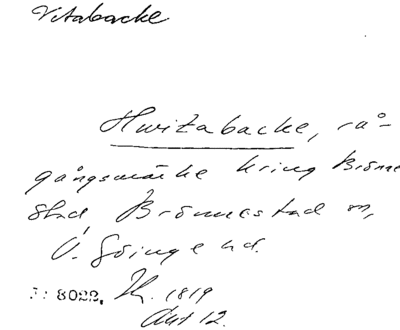 Vitabacke
Hwitabacke, rå-
gångsmärke kring Brönne
stad Brönnestad sn,
V. Göinge hd.
8022. 1819
Akt 12.